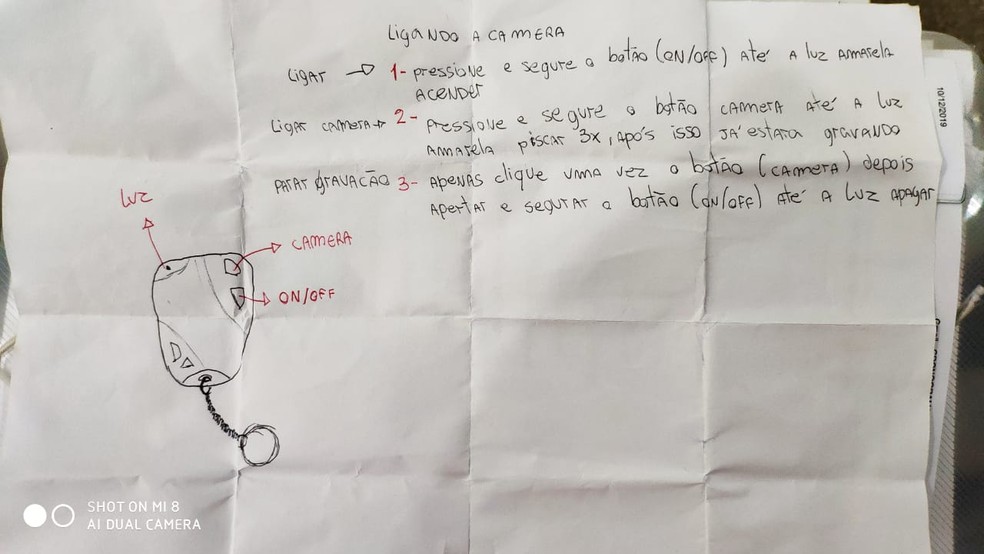 LIGANDO A CAMERA
LIGAR → 1- pressione e segure o botão (ON/OFF) Até A luz AMARELA
ACENDER
LIGAR CAMERA → 2- pressione e segure o botão CAMERA Até A luz
AMARELA piscar 3x, após isso JÁ estara gravando
PARAR GRAVACÃO 3- Apenas clique uma vez o botão (CAMERA) depois
Apertar e segurar o botão (ON/OFF) Até A luz Apagar
luz
CAMERA
ON/OFF
10/12/2019
SHOT ON MI 8
AI DUAL CAMERA